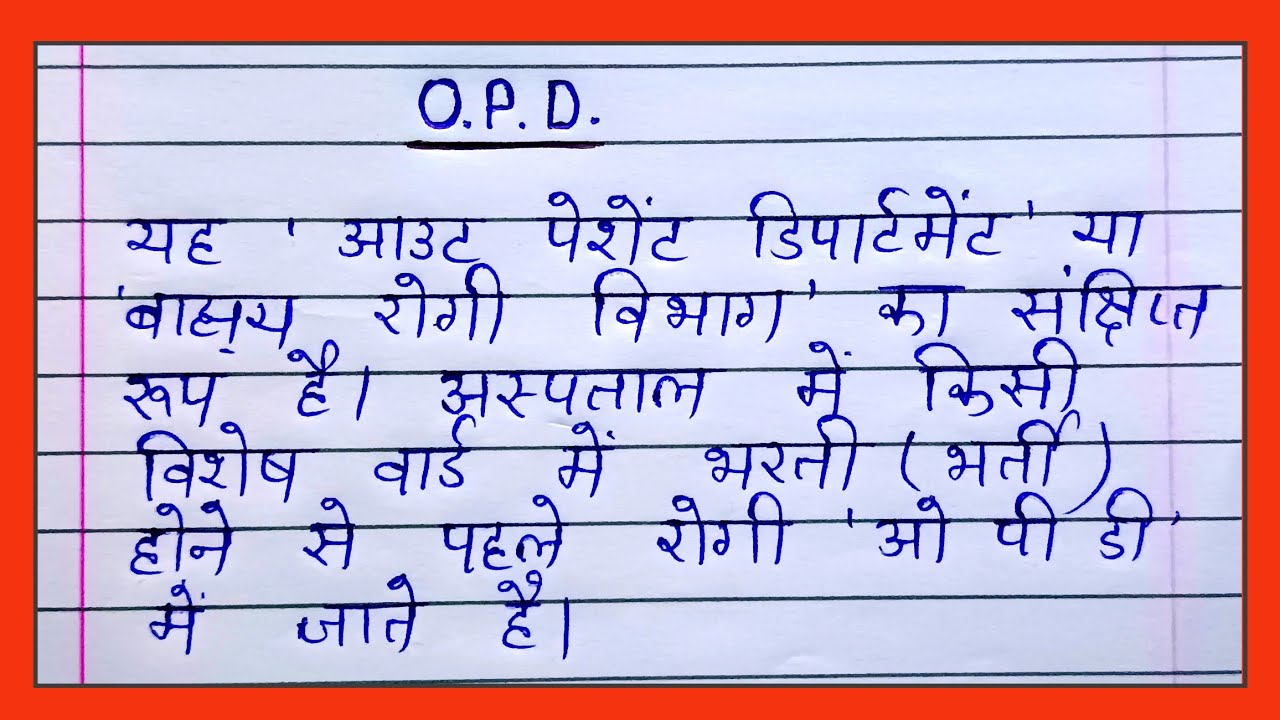 O.P.D.
यह 'आउट पेशेंट डिपार्टमेंट' या
'बाह्म्य रोगी विभाग' का संक्षिप्त
रूप है। अस्पताल में किसी
विशेष वार्ड में भरती (भर्ती)
होने से पहले रोगी 'ओ पी डी'
में जाते है।